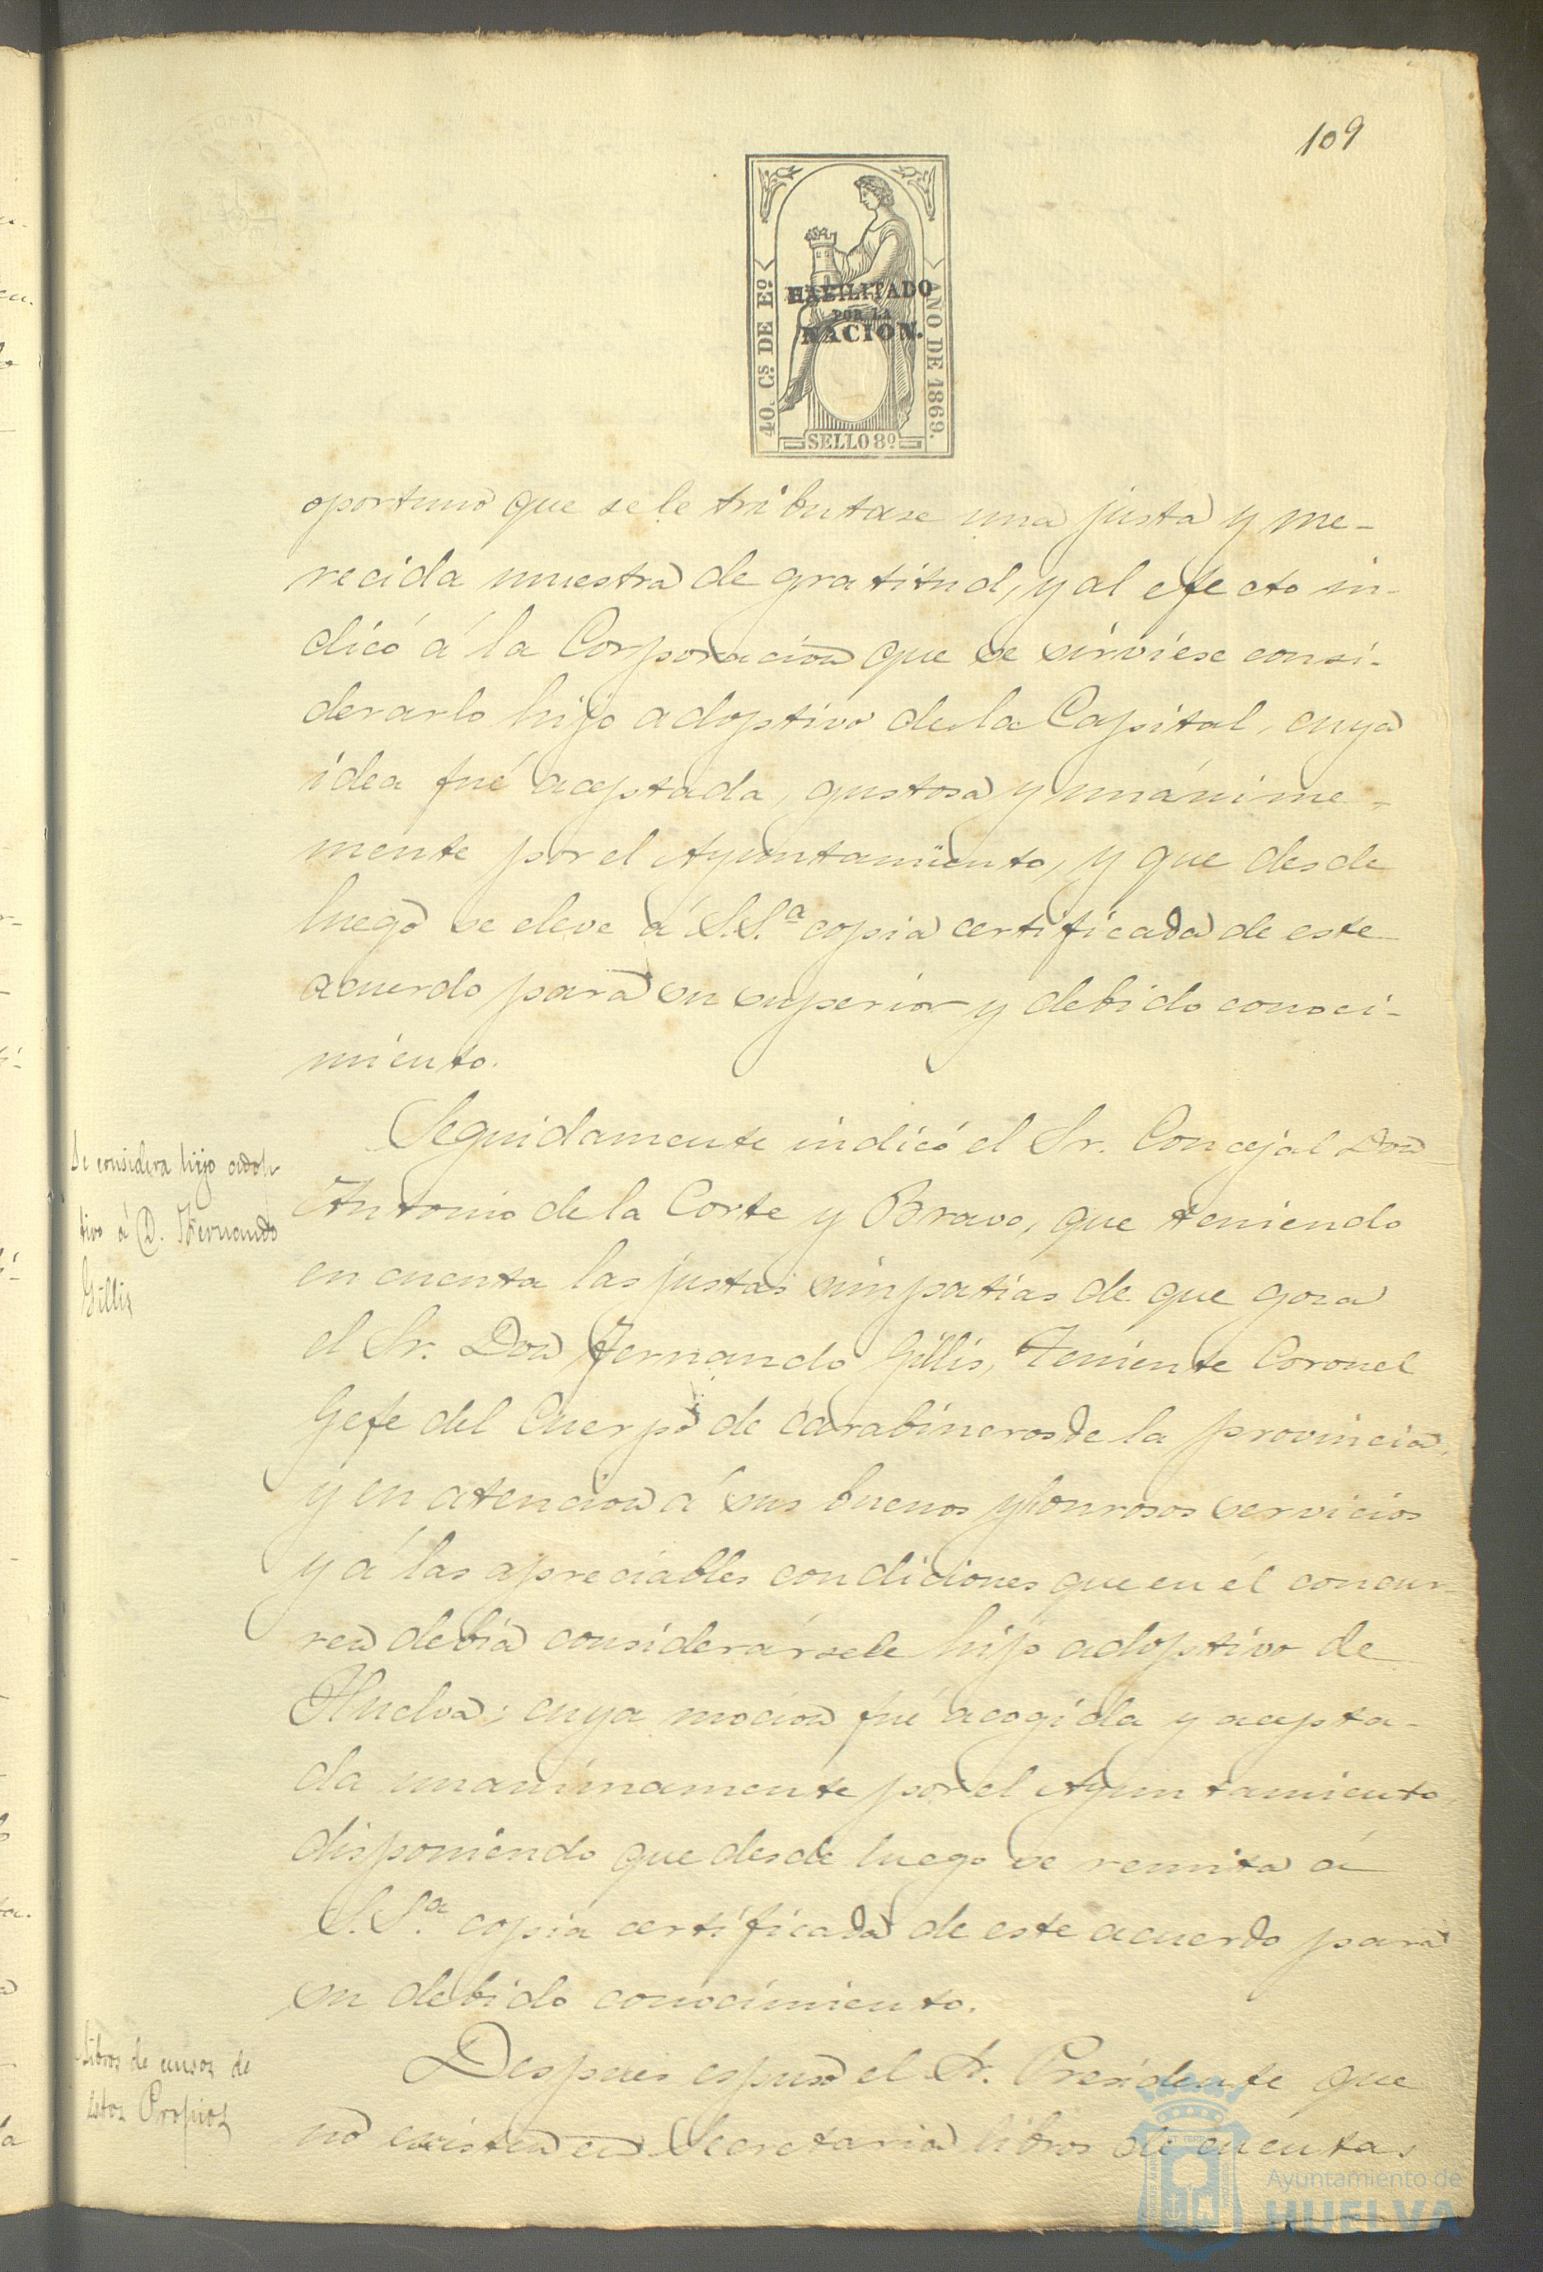 109
40. Cs. DE Eº
AÑO DE 1869.
HABILITADO
POR LA
NACION.
SELLO 8º
oportuno que se le tributase una justa y me-
recida muestra de gratitud, y al efecto in-
dicó á la Corporacion que se sirviese consi-
derarlo hijo adoptivo de la Capital, cuya
idea fué aceptada, gustosa y unánime-
mente por el Ayuntamiento, y que desde
luego se eleve á S.S.ª copia certificada de este
acuerdo para su superior y debido conoci-
miento.
Se considera hijo adop-
tivo á D. Fernando
Gillis
Seguidamente indicó el Sr. Concejal Don
Antonio de la Corte y Bravo, que teniendo
en cuenta las justas simpatias de que goza
el Sr. Don Fernando Gillis, Teniente Coronel
Gefe del Cuerpo de carabineros de la provincia,
y en atencion á sus buenos y honrosos servicios
y á las apreciables condiciones que en él concur-
ren debia considerársele hijo adoptivo de
Huelva; cuya mocion fué acogida y acepta-
da unanimamente por el Ayuntamiento,
disponiendo que desde luego se remita á
S.S.ª copia certificada de este acuerdo para
su debido conocimiento.
Libros de de
estos Propios
Despues espuso el Sr. Presidente que
no existen en Secretaria libros de cuentas
Ayuntamiento de
HUELVA